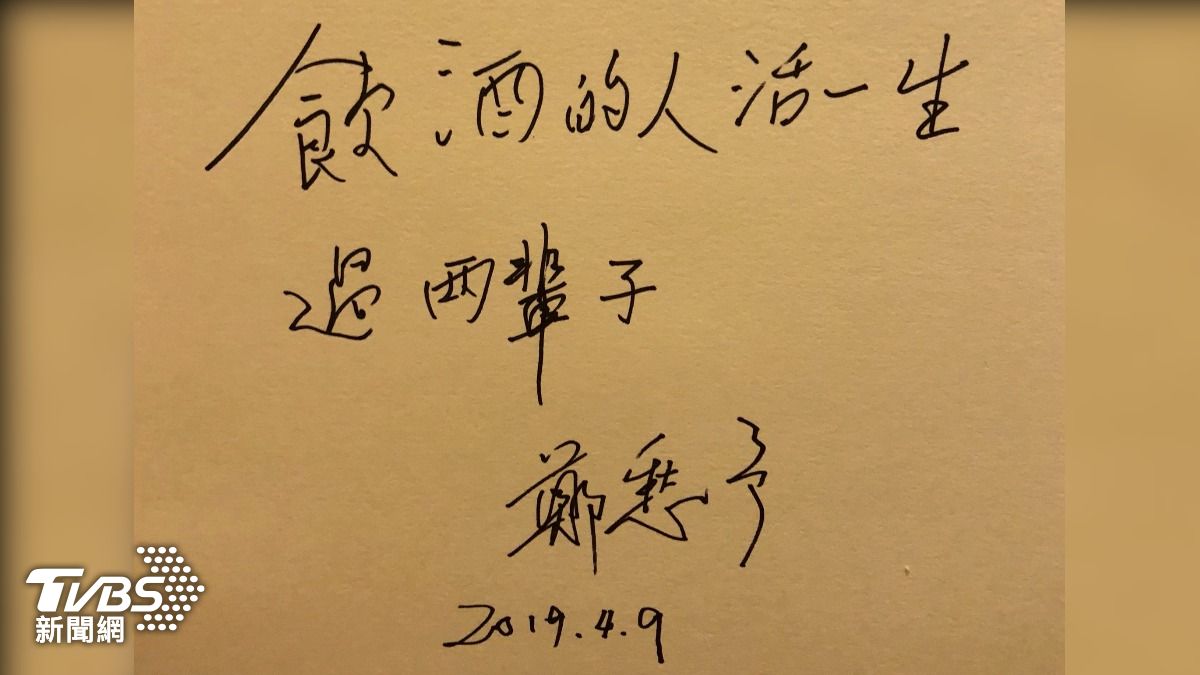 飲酒的人活一生
過兩輩子
鄭愁予
2019.4.9
TVBS
新聞網